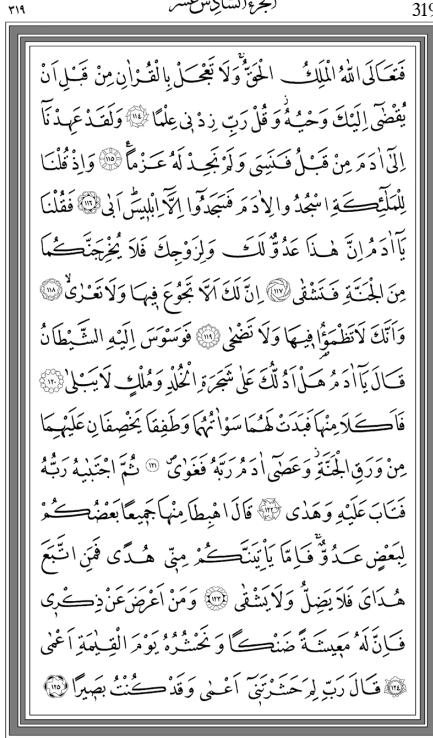 ٣١٩ الجزء السادس عشر 319
فَتَعَالَى اللّٰهُ الْمَلِكُ الْحَقُّۚ وَلَا تَعْجَلْ بِالْقُرْاٰنِ مِنْ قَبْلِ اَنْ
يُقْضٰٓى اِلَيْكَ وَحْيُهُۘ وَقُلْ رَبِّ زِدْنٖى عِلْمًا ﴿١١٤﴾ وَلَقَدْ عَهِدْنَٓا
اِلٰٓى اٰدَمَ مِنْ قَبْلُ فَنَسِىَ وَلَمْ نَجِدْ لَهُ عَزْمًا۟ ﴿١١٥﴾ وَاِذْ قُلْنَا
لِلْمَلٰٓئِكَةِ اسْجُدُوا لِاٰدَمَ فَسَجَدُٓوا اِلَّٓا اِبْلٖيسَۜ اَبٰى ﴿١١٦﴾ فَقُلْنَا
يَٓا اٰدَمُ اِنَّ هٰذَا عَدُوٌّ لَكَ وَلِزَوْجِكَ فَلَا يُخْرِجَنَّكُمَا
مِنَ الْجَنَّةِ فَتَشْقٰى ﴿١١٧﴾ اِنَّ لَكَ اَلَّا تَجُوعَ فٖيهَا وَلَا تَعْرٰىۙ ﴿١١٨﴾
وَاَنَّكَ لَا تَظْمَؤُ۬ا فٖيهَا وَلَا تَضْحٰى ﴿١١٩﴾ فَوَسْوَسَ اِلَيْهِ الشَّيْطَانُ
قَالَ يَٓا اٰدَمُ هَلْ اَدُلُّكَ عَلٰى شَجَرَةِ الْخُلْدِ وَمُلْكٍ لَا يَبْلٰى ﴿١٢٠﴾
فَاَكَلَا مِنْهَا فَبَدَتْ لَهُمَا سَوْاٰتُهُمَا وَطَفِقَا يَخْصِفَانِ عَلَيْهِمَا
مِنْ وَرَقِ الْجَنَّةِؗ وَعَصٰٓى اٰدَمُ رَبَّهُ فَغَوٰىۖ ﴿١٢١﴾ ثُمَّ اجْتَبٰيهُ رَبُّهُ
فَتَابَ عَلَيْهِ وَهَدٰى ﴿١٢٢﴾ قَالَ اهْبِطَا مِنْهَا جَمٖيعًا بَعْضُكُمْ
لِبَعْضٍ عَدُوٌّۚ فَاِمَّا يَاْتِيَنَّكُمْ مِنّٖى هُدًى فَمَنِ اتَّبَعَ
هُدَاىَ فَلَا يَضِلُّ وَلَا يَشْقٰى ﴿١٢٣﴾ وَمَنْ اَعْرَضَ عَنْ ذِكْرٖى
فَاِنَّ لَهُ مَعٖيشَةً ضَنْكًا وَنَحْشُرُهُ يَوْمَ الْقِيٰمَةِ اَعْمٰى
﴿١٢٤﴾ قَالَ رَبِّ لِمَ حَشَرْتَنٖٓى اَعْمٰى وَقَدْ كُنْتُ بَصٖيرًا ﴿١٢٥﴾